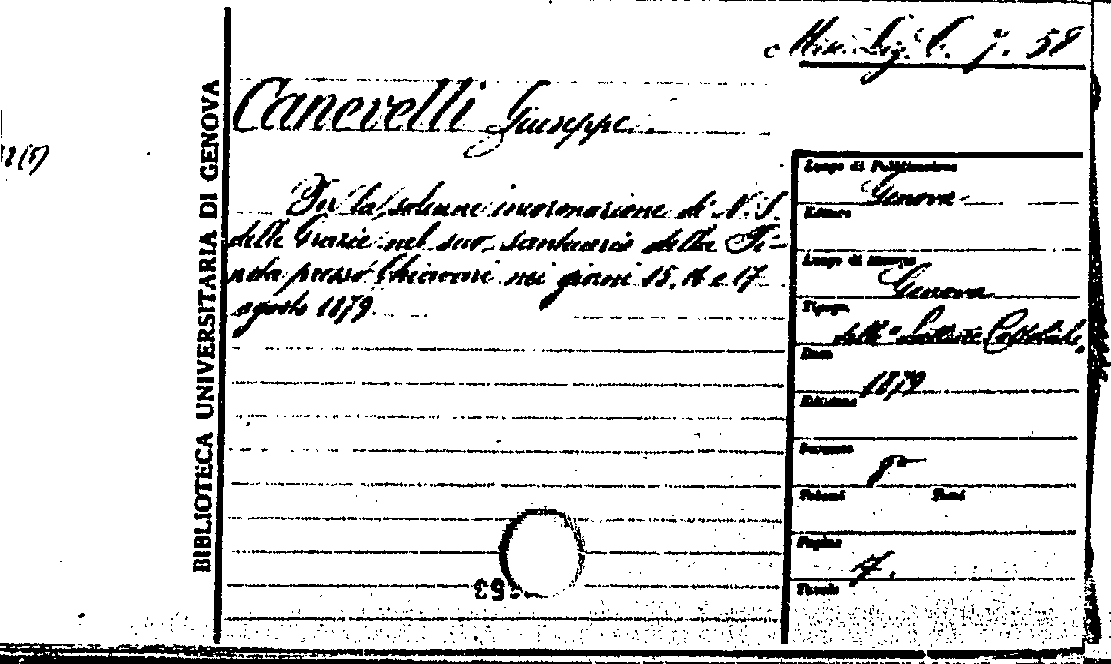 Misc. Lig. C. 7. 58
BIBLIOTECA UNIVERSITARIA DI GENOVA
Canevelli Giuseppe.
Per la solenne incoronazione di N. S.
delle Grazie nel suo santuario della
presso Chiavari nei giorni 15, 16 e 17
agosto 1879
Luogo di Pubblicazione
Genova
Editore
Luogo di stampa
Genova
Tipogr.
delle Letture Cattoliche
Data
1879
Edizione
Formato
8°
Volumi Tomi
Pagine
7.
Tavole